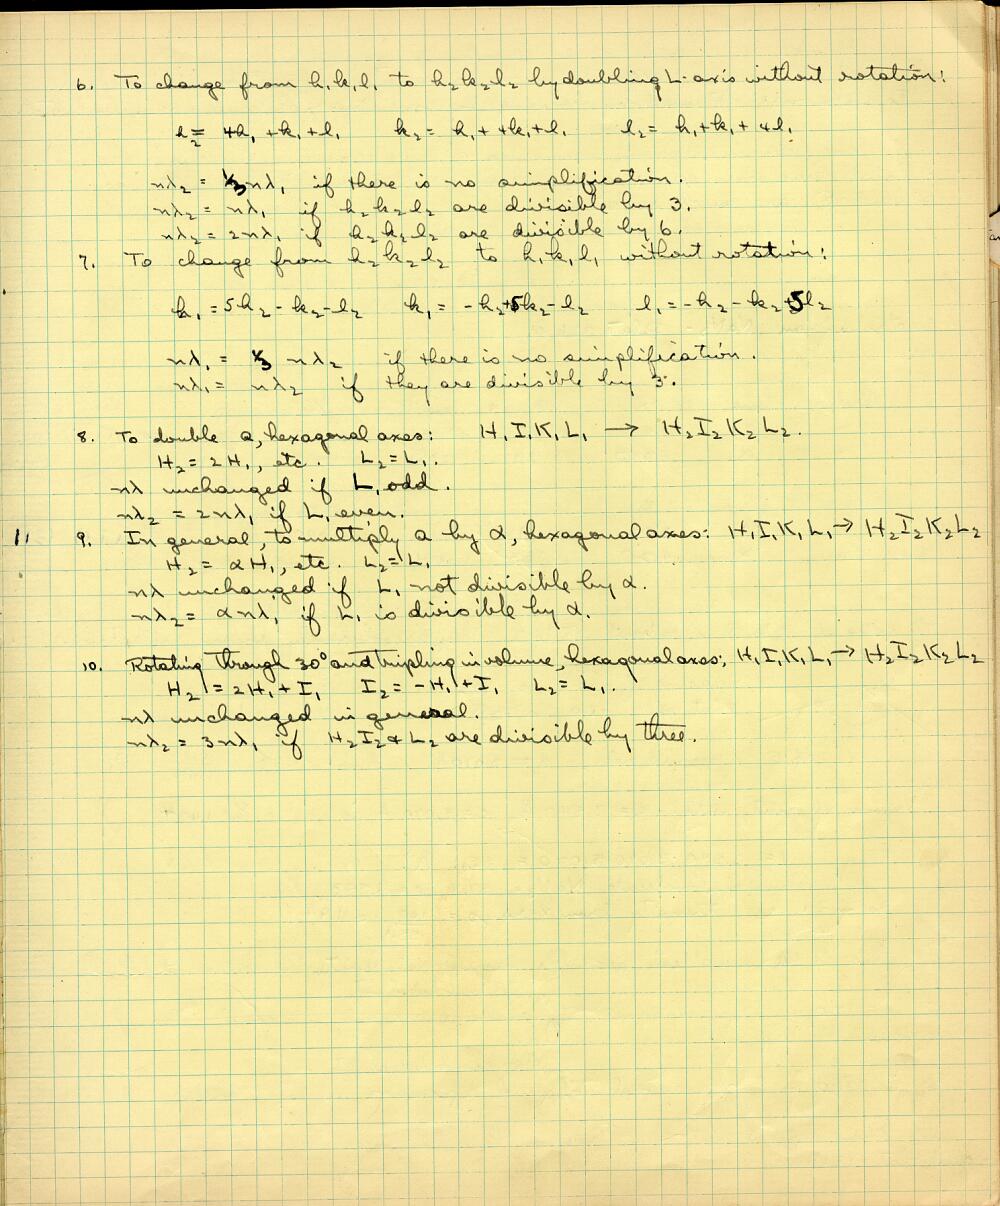 6. To change from h₁k₁l₁ to h₂k₂l₂ by doubling L-axis without rotation:
h₂ = 4h₁ + k₁ + l₁ k₂ = h₁ + 4k₁ + l₁ l₂ = h₁ + k₁ + 4l₁
nλ₂ = ⅓nλ₁ if there is no simplification.
nλ₂ = nλ₁ if h₂k₂l₂ are divisible by 3.
nλ₂ = 2nλ₁ if h₂k₂l₂ are divisible by 6.
7. To change from h₂k₂l₂ to h₁k₁l₁ without rotation:
h₁ = 5h₂ - k₂ - l₂ k₁ = -h₂ + 5k₂ - l₂ l₁ = -h₂ - k₂ + 5l₂
nλ₁ = ⅓ nλ₂ if there is no simplification.
nλ₁ = nλ₂ if they are divisible by 3.
8. To double a, hexagonal axes: H₁I₁K₁L₁ → H₂I₂K₂L₂.
H₂ = 2H₁, etc. L₂ = L₁.
nλ unchanged if L₁ odd.
nλ₂ = 2nλ₁ if L₁ even.
11 9. In general, to multiply a by α, hexagonal axes: H₁I₁K₁L₁ → H₂I₂K₂L₂
H₂ = αH₁, etc. L₂ = L₁
nλ unchanged if L₁ not divisible by α.
nλ₂ = αnλ₁ if L₁ is divisible by α.
10. Rotating through 30° and tripling in volume, hexagonal axes; H₁I₁K₁L₁ → H₂I₂K₂L₂
H₂ = 2H₁ + I₁ I₂ = -H₁ + I₁ L₂ = L₁.
nλ unchanged in general.
nλ₂ = 3nλ₁ if H₂I₂ & L₂ are divisible by three.